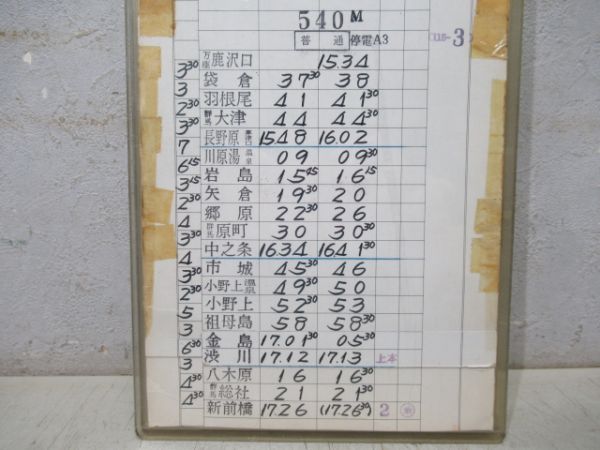 540M
普通 停電A3
(115-3)
万座鹿沢口 15.34
3³⁰ 袋倉 37³⁰ 38
3 羽根尾 41 41³⁰
2³⁰ 群馬大津 44 44³⁰
3³⁰ 長野原草津口 15.48 16.02
7 川原湯温泉 09 09³⁰
6¹⁵ 岩島 15⁴⁵ 16¹⁵
3¹⁵ 矢倉 19³⁰ 20
2³⁰ 郷原 22³⁰ 26
4 群馬原町 30 30³⁰
3³⁰ 中之条 16.34 16.41³⁰
4 市城 45³⁰ 46
3³⁰ 小野上温泉 49³⁰ 50
2³⁰ 小野上 52³⁰ 53
5 祖母島 58 58³⁰
3 金島 17.01³⁰ 05³⁰
6³⁰ 渋川 17.12 17.13 上本
3 八木原 16 16³⁰
4³⁰ 群馬総社 21 21³⁰
4³⁰ 新前橋 17.26 (17.26³⁰) 2